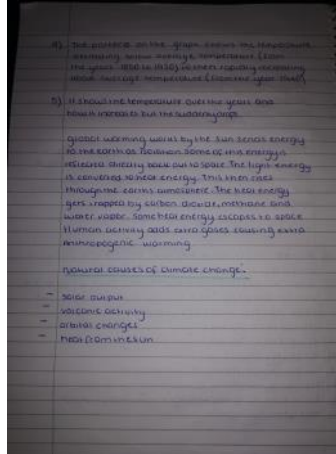 4) The pattern on the graph shows the temperature
average temperature (from
the years 1850 to 1930) is then rapidly increasing
above average temperature (from the year
5) It shows the temperature over the years and
how it increases but the sudden jumps
global warming works by the sun sends energy
to the earth as radiation. Some of this energy is
reflected directly back out to space. The light energy
is converted to heat energy. This then rises
through the earths atmosphere. The heat energy
gets trapped by carbon dioxide, methane and
water vapor. Some heat energy escapes to space
Human activity adds extra gases causing extra
Anthropogenic warming
natural causes of climate change:
- solar output
- volcanic activity
- orbital changes
- heat from the sun